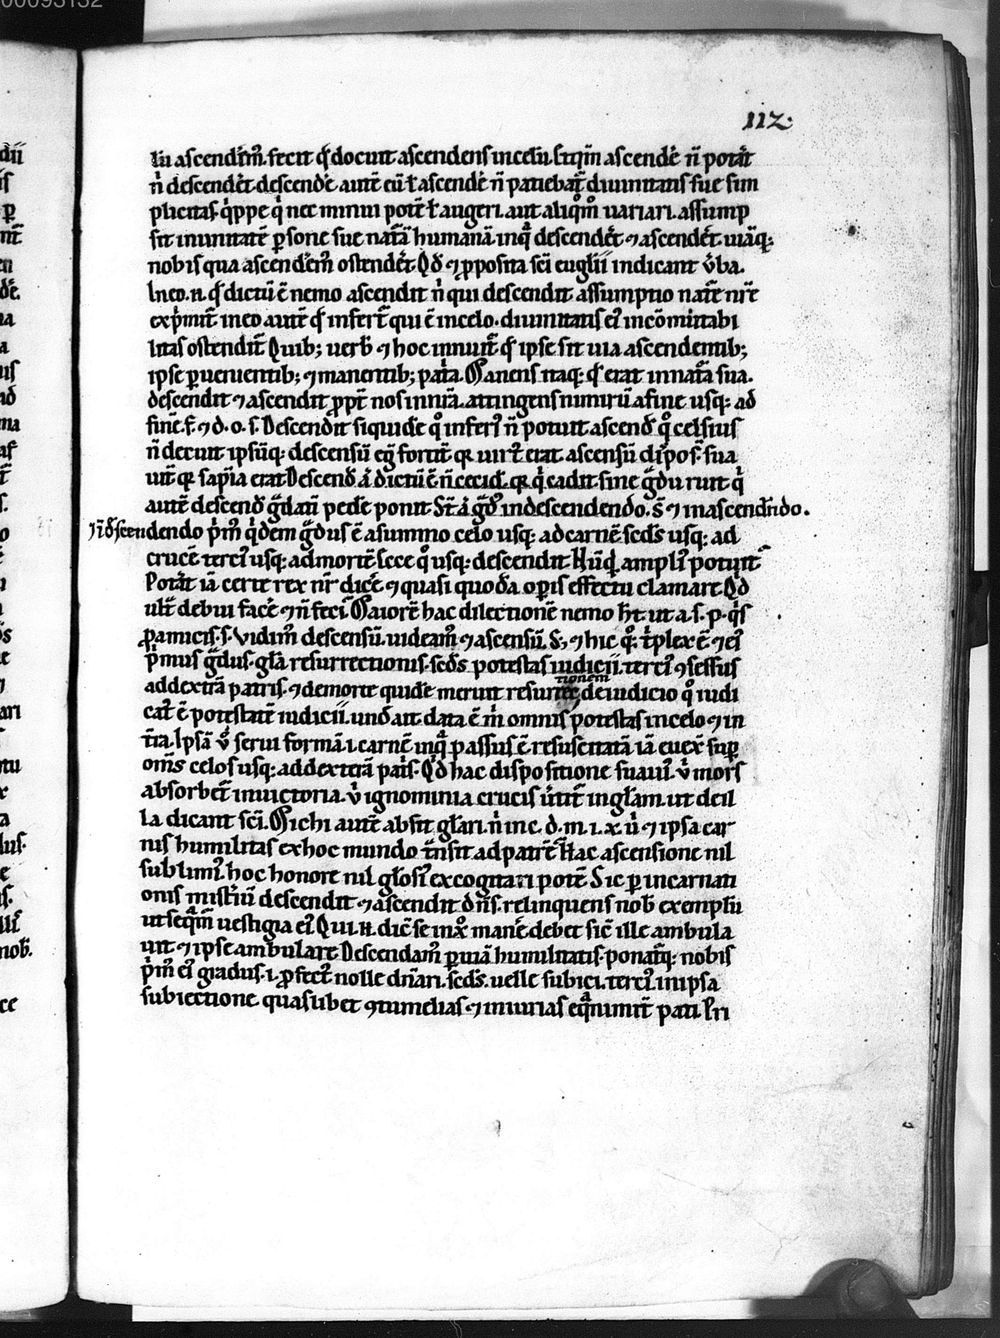 00093132
112.
liū ascendim̄. fecit q̄d docuit ascendens in celū. Siqm̄ ascendē n̄ potāt
n̄ descendēt descendē autē eū t ascendē n̄ patiebat̄ diuinitatis sue sim
plicitas. q̇ppe q̇ nec minui potē t augeri. aut aliq̊m̊ uariari. assump
sit in unitatē psone sue natā humanā inq̄ descendēt ⁊ ascendēt. uiāq;
nobis qua ascendēm̄ ostendēt Qd̄ ⁊ pposita sc̄i euglii indicant v̄ba.
In eo. n. q̄d dictū ē nemo ascendit n̄ qui descendit assumptio natē nr̄e
exp̄mit̄ in eo autē q̄d infert̄ qui ē in celo. diuinitatis ei᷒ incōmutabi
litas ostendit̄ Quib; uerb̄ ⁊ hoc innuit̄ q̄d ipse sit uia ascendentib;
ipse puenientib; ⁊ manentib; pat̄a. Manens itaq; q̄d erat in nat̄a sua.
descendit ⁊ ascendit ppt̄ nos in inuiā. attingens nimirū a fine usq; ad
finē. f̄. ⁊ d. o. s. Descendit siquidē q̊ inferi᷒ n̄ potuit ascend̄ q̊ celsius
n̄ decuit ipsūq; descensū eq̄ fortit̄ qr uirt᷒ erat ascensū dispos̄. sua
uit̄ qr sap̄ia erat Descend̄ā dictū ē n̄ cecid̄. qr q̇ cadit sine g̊du ruit q̇
autē descend̄ g̊datī pedē ponit St̄ ā g̊d᷒ in descendendo. s̄. ⁊ in ascend̄ndo.
⁊ ī d̄scendendo p̄m᷒ q̇dem g̊dus ē a summo celo usq; ad carnē sc̄ds usq; ad
crucē terci᷒ usq; ad mortē. Ecce q̊ usq; descendit Nūq̇d ampli᷒ potuit
Potāt iā certe rex nr̄ dicē ⁊ quasi quodā opis effectu clamare Qd̄
ult̄ debui facē ⁊ n̄ feci. Maiorē hac dilectionē nemo h̄t. ut a. s. p. q̇s
p amicis. s. Vidim᷒ descensū. uideam᷒ ⁊ ascensū. S; ⁊ hic q̊; t̄plex ē ⁊ ei᷒
p̄mus g̊dus. gl̄a resurrectionis. sc̄ds potestas iudicii. terci᷒ ꝯsessus
ad dextrā patris. ⁊ de morte quidē meruit resurrec tionem de iudicio q̊ iudi
cat᷒ ē potestatē iudicii. und̄ ait data ē m̄ omnis potestas in celo ⁊ in
t̄ra. Ipsā v̊ serui formā. i. carnē inq̄ passus ē resuscitatā iā euex̄ sup
om̄s celos usq; ad dexterā pat̄s. Qd̄ hac dispositione suaui᷒ v̄ mors
absorbet̄ in uictoria. v̄ ignominia crucis ūtit̄ in gl̄am. ut de il
la dicant sc̄i. Michi autē absit gl̄ari. n̄ in c. d. m. i. x. ū ⁊ ipsa car
nis humilitas ex hoc mundo t̄nsit ad patrē Hac ascensione nil
sublimi᷒ hoc honore nil gl̄osi᷒ excogitari potē Sic p incarnati
onis mist̄iū descendit ⁊ ascendit dn̄s. relinquens nob̄ exemplū
ut seq̄m̄ uestigia ei᷒ Qui. n. dic̄ se in xp̄o manē debet sic̄ ille ambula
uit ⁊ ipse ambulare Descendam᷒ p uiā humilitatis. ponat̄q; nobis
p̄m᷒ ei᷒ gradus. i. pfect᷒ nolle dn̄ari. sc̄ds. uelle subici. terci᷒ in ipsa
subiectione quaslibet ꝯtumelias. ⁊ iniurias eq̄nimit̄ pati. Pri